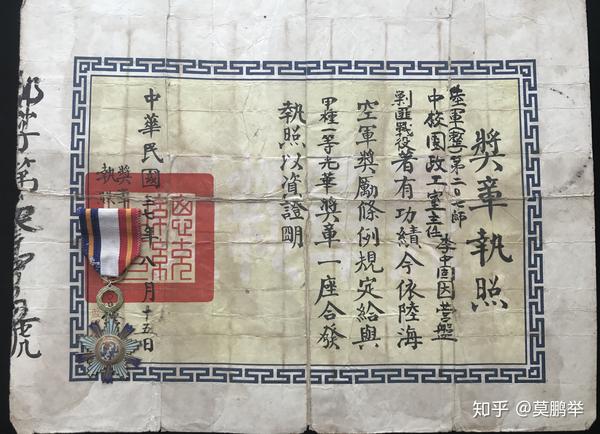 獎章執照
陸軍整第二〇七師
中校團政工室主任李中固因營盤
剿匪戰役著有功績今依陸海
空軍獎勵條例規定給與
甲種一等光華獎章一座合發
執照以資證明
中華民國卅七年八月十五日
獎章
執照
字第號
知乎 @莫鹏举